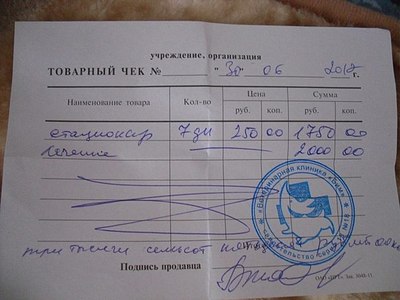 учреждение, организация
ТОВАРНЫЙ ЧЕК № "30" 06 2012
Наименование товара Кол-во Цена Сумма
руб. коп. руб. коп.
стационар 7 дн 250 00 1750 00
Лечение 2000 00
три тысячи семьсот пятьдесят рублей 00 коп
Подпись продавца
«Ветеринарная клиника